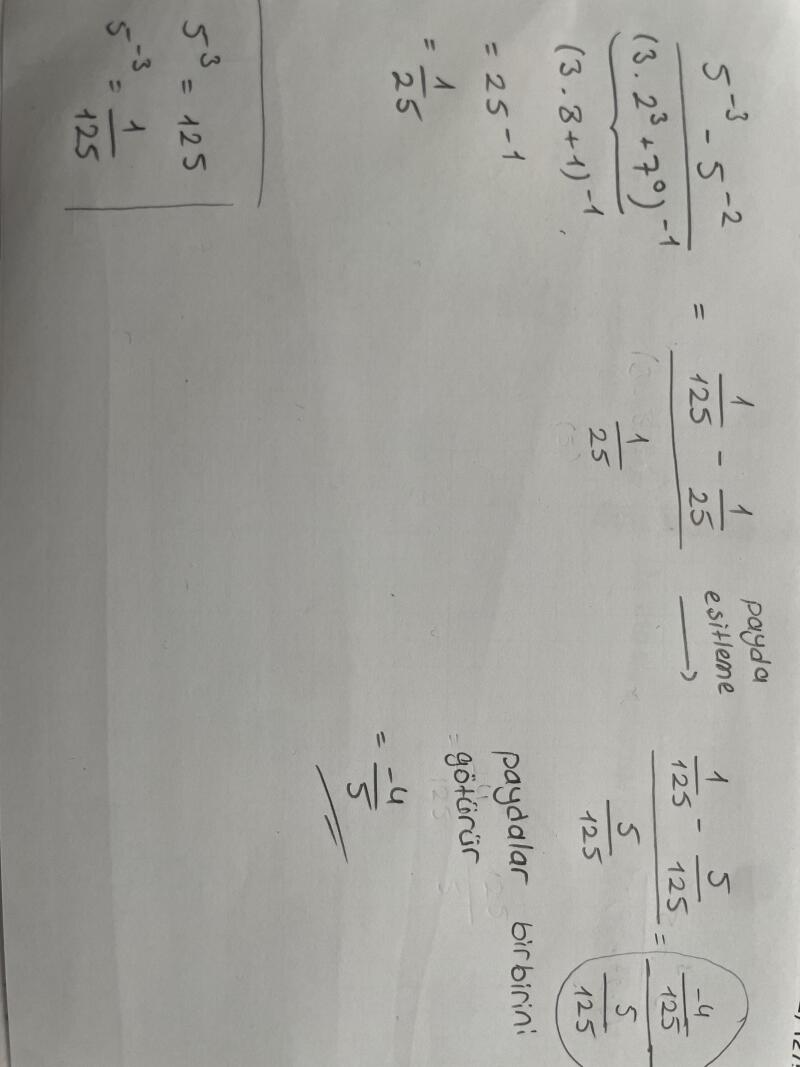 5⁻³ - 5⁻² / (3 . 2³ + 7⁰)⁻¹ = 1/125 - 1/25 / 1/25 payda esitleme → 1/125 - 5/125 / 5/125 = -4/125 / 5/125
(3 . 8 + 1)⁻¹
= 25⁻¹
= 1/25
paydalar birbirini
götürür
= -4/5
5³ = 125
5⁻³ = 1/125